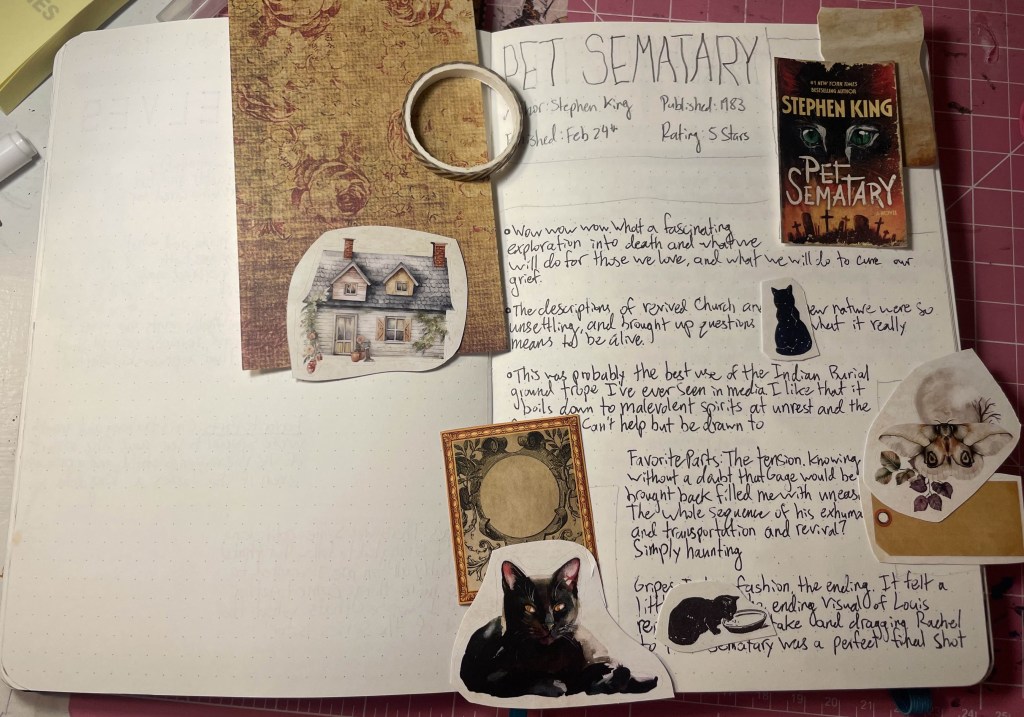 PET SEMATARY
Stephen King
Published: 1983
Feb 24th
Rating: 5 Stars
#1 NEW YORK TIMES
BESTSELLING AUTHOR
STEPHEN KING
PET
SEMATARY
A NOVEL
Wow wow wow. What a fascinating
exploration into death and what we
will do for those we love, and what we will do to cure our
grief.
The descriptions of revived Church and new nature were so
unsettling, and brought up questions what it really
means to be alive.
This was probably the best use of the Indian Burial
ground trope I've ever seen in media. I like that it
boils down to malevolent spirits at unrest and the
Can't help but be drawn to
Favorite Parts: The tension. Knowing
without a doubt that Gage would be
brought back filled me with unease
The whole sequence of his exhuma
and transportation and revival?
Simply haunting
Gripes: fashion, the ending. It felt a
ending visual of Louis
take and dragging Rachel
to Sematary was a perfect final shot